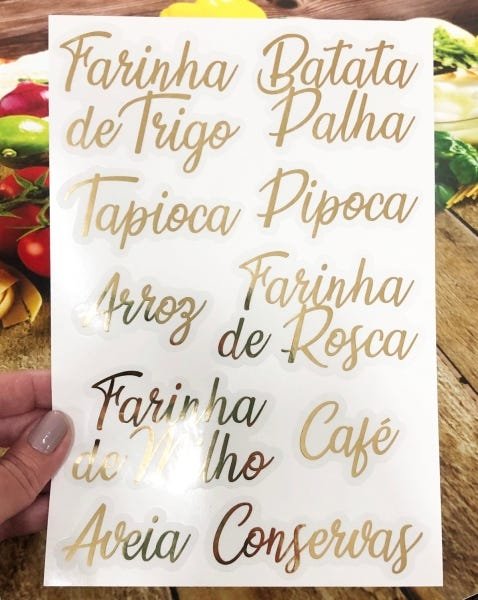 Farinha
de Trigo
Batata
Palha
Tapioca
Pipoca
Arroz
Farinha
de Rosca
Farinha
de Milho
Café
Aveia
Conservas